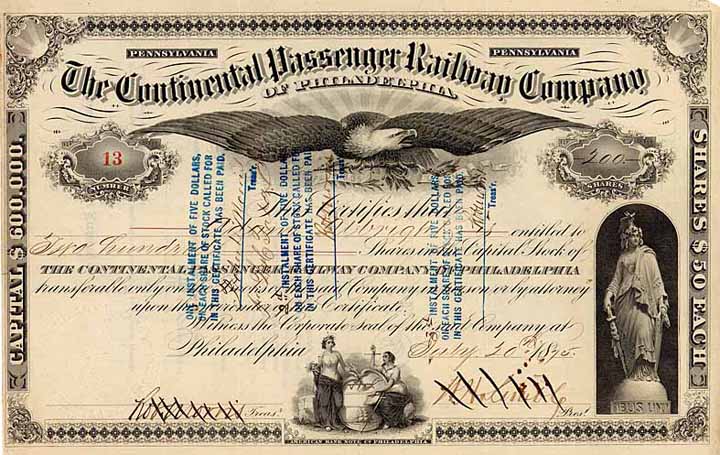 PENNSYLVANIA PENNSYLVANIA
The Continental Passenger Railway Company
OF PHILADELPHIA.
13
NUMBER
200
SHARES
CAPITAL $600,000.
SHARES $50 EACH
This Certifies that
is entitled to
Two Hundred Shares in the Capital Stock of
THE CONTINENTAL PASSENGER RAILWAY COMPANY OF PHILADELPHIA
transferable only on the Books of the said Company in person or by attorney
upon the surrender of this Certificate.
Witness the Corporate Seal of the said Company at
Philadelphia July 20th 1875.
Treas.
Prest.
ONE INSTALMENT OF FIVE DOLLARS,
ON EACH SHARE OF STOCK CALLED FOR
IN THIS CERTIFICATE HAS BEEN PAID.
Treas'r.
INSTALMENT OF FIVE DOLLARS
ON EACH SHARE OF STOCK CALLED FOR
IN THIS CERTIFICATE HAS BEEN PAID.
Treas'r.
INSTALMENT OF FIVE DOLLARS
ON EACH SHARE OF STOCK CALLED FOR
IN THIS CERTIFICATE HAS BEEN PAID.
Treas'r.
IBUS UN
AMERICAN BANK NOTE CO. PHILADELPHIA